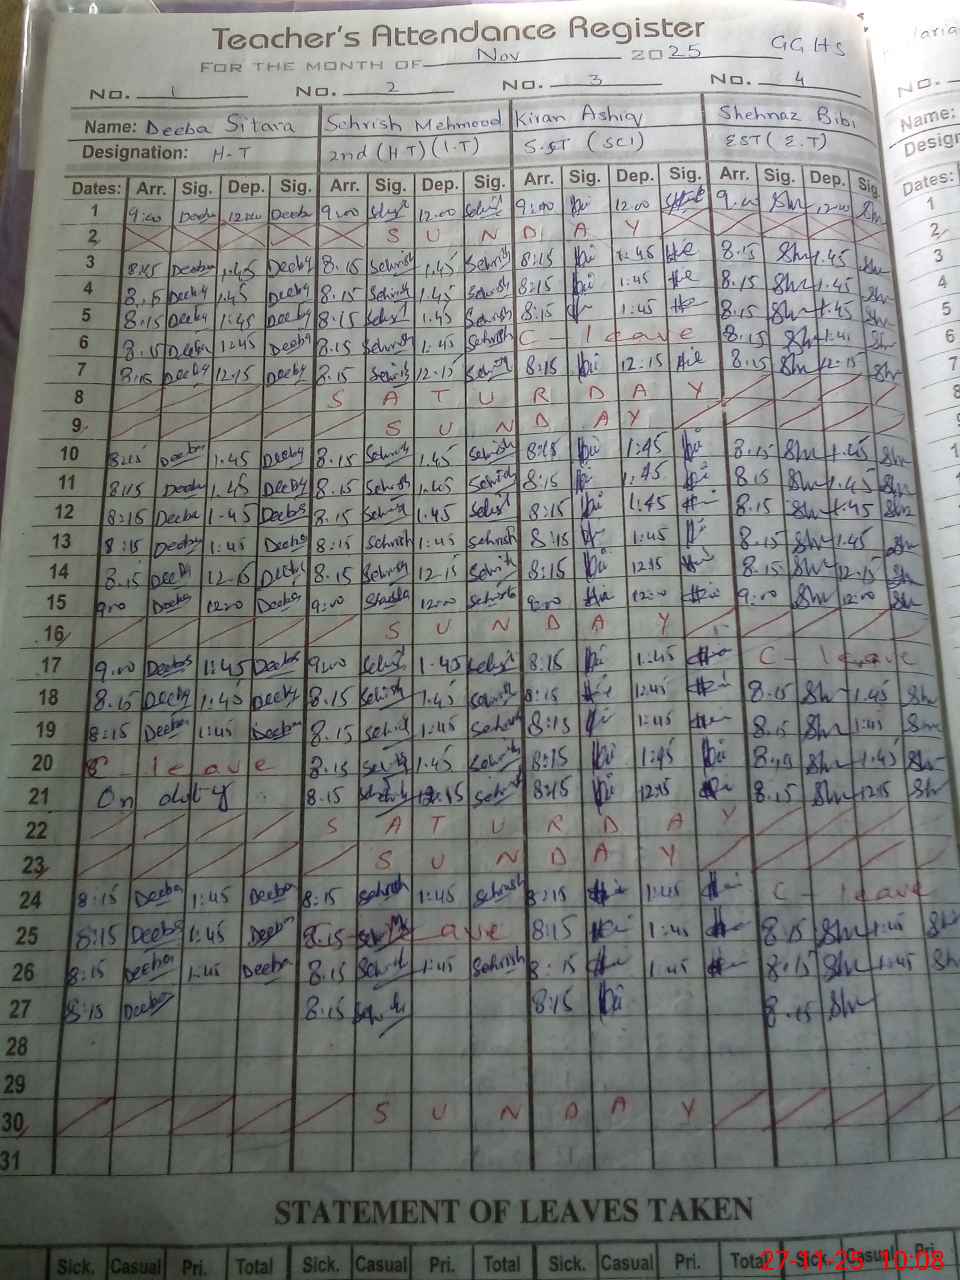 Teacher's Attendance Register
FOR THE MONTH OF Nov 2025 GGHS
No. 1 No. 2 No. 3 No. 4 No.
Name: Deeba Sitara Sehrish Mehmood Kiran Ashiq Shehnaz Bibi Name:
Designation: H-T 2nd (H T) (I.T) S.ST (SCI) EST (E.T)
Dates: Arr. Sig. Dep. Sig. Arr. Sig. Dep. Sig. Arr. Sig. Dep. Sig. Arr. Sig. Dep. Sig. Dates:
1 9:00 Deeba 12:00 Deeba 9:00 12:00 9:00 12:00 9:00 Shn 12:00 Shn 1
2 S U N D A Y 2
3 8:15 Deeba 1.45 Deeby 8.15 Sehrish 1.45 Sehrish 8:15 1:45 8.15 Shn 1.45 Shn 3
4 8.15 Deeby 1.45 Deeby 8.15 Sehrish 1.45 Sehrish 8:15 1:45 8.15 Shn 1.45 Shn 4
5 8.15 Deeby 1:45 Deeby 8.15 1.45 Sehrish 8:15 1:45 8.15 Shn 1.45 Shn 5
6 8.15 Deeba 1:45 Deeba 8.15 Sehrish 1.45 Sehrish C - leave 8.15 Shn 1.45 Shn 6
7 8:15 Deeby 12.15 Deeby 8.15 Sehrish 12.15 8:15 12:15 8.15 Shn 12.15 Shn 7
8 S A T U R D A Y 8
9 S U N D A Y
10 8:15 Deeba 1.45 Deeby 8.15 Sehrish 1.45 Sehrish 8:15 1:45 8.15 Shn 1.45 Shn
11 8:15 Deeba 1.45 Deeby 8.15 Sehrish 1.45 Sehrish 8:15 1:45 8.15 Shn 1.45 Shn
12 8:15 Deeba 1-45 Deeba 8.15 Sehrish 1.45 8:15 1:45 8.15 Shn 1:45 Shn
13 8:15 Deeby 1:45 Deeba 8:15 Sehrish 1:45 Sehrish 8:15 1:45 8.15 Shn 1.45 Shn
14 8.15 Deeby 12.15 Deeby 8.15 Sehrish 12.15 Sehrish 8:15 12:15 8.15 Shn 12.15 Shn
15 9:00 Deeba 12:00 Deeba 9:00 12:00 Sehrish 12:00 9:00 Shn 12:00 Shn
16 S U N D A Y
17 9.00 Deeba 1:45 Deeba 9:00 1.45 8:15 1:45 C - leave
18 8.15 Deeby 1:45 Deeby 8.15 Sehrish 1.45 Sehrish 8:15 1:45 8.15 Shn 1.45 Shn
19 8:15 Deeba 1:45 Deeba 8.15 Sehrish 1:45 Sehrish 8:15 1:45 8.15 Shn 1:45 Shn
20 C - leave 8.15 Sehrish 1.45 Sehrish 8:15 1:45 8.15 Shn 1.45 Shn
21 On duty 8.15 Sehrish 12.15 Sehrish 8:15 12:15 8.15 Shn 12:15 Shn
22 S A T U R D A Y
23 S U N D A Y
24 8:15 Deeba 1:45 Deeba 8:15 Sehrish 1:45 Sehrish 8:15 1:45 C - leave
25 8:15 Deeba 1:45 Deeba 8.15 ave 8:15 1:45 8.15 Shn 1:45 Shn
26 8:15 Deeba 1:45 Deeba 8.15 Sehrish 1:45 Sehrish 8:15 1:45 8:15 Shn 1:45 Shn
27 8:15 Deeba 8.15 Sehrish 8:15 8.15 Shn
28
29
30 S U N D A Y
31
STATEMENT OF LEAVES TAKEN
Sick. Casual Pri. Total Sick. Casual Pri. Total Sick. Casual Pri. Total Sick. Casual Pri.
27-11-25 10:08